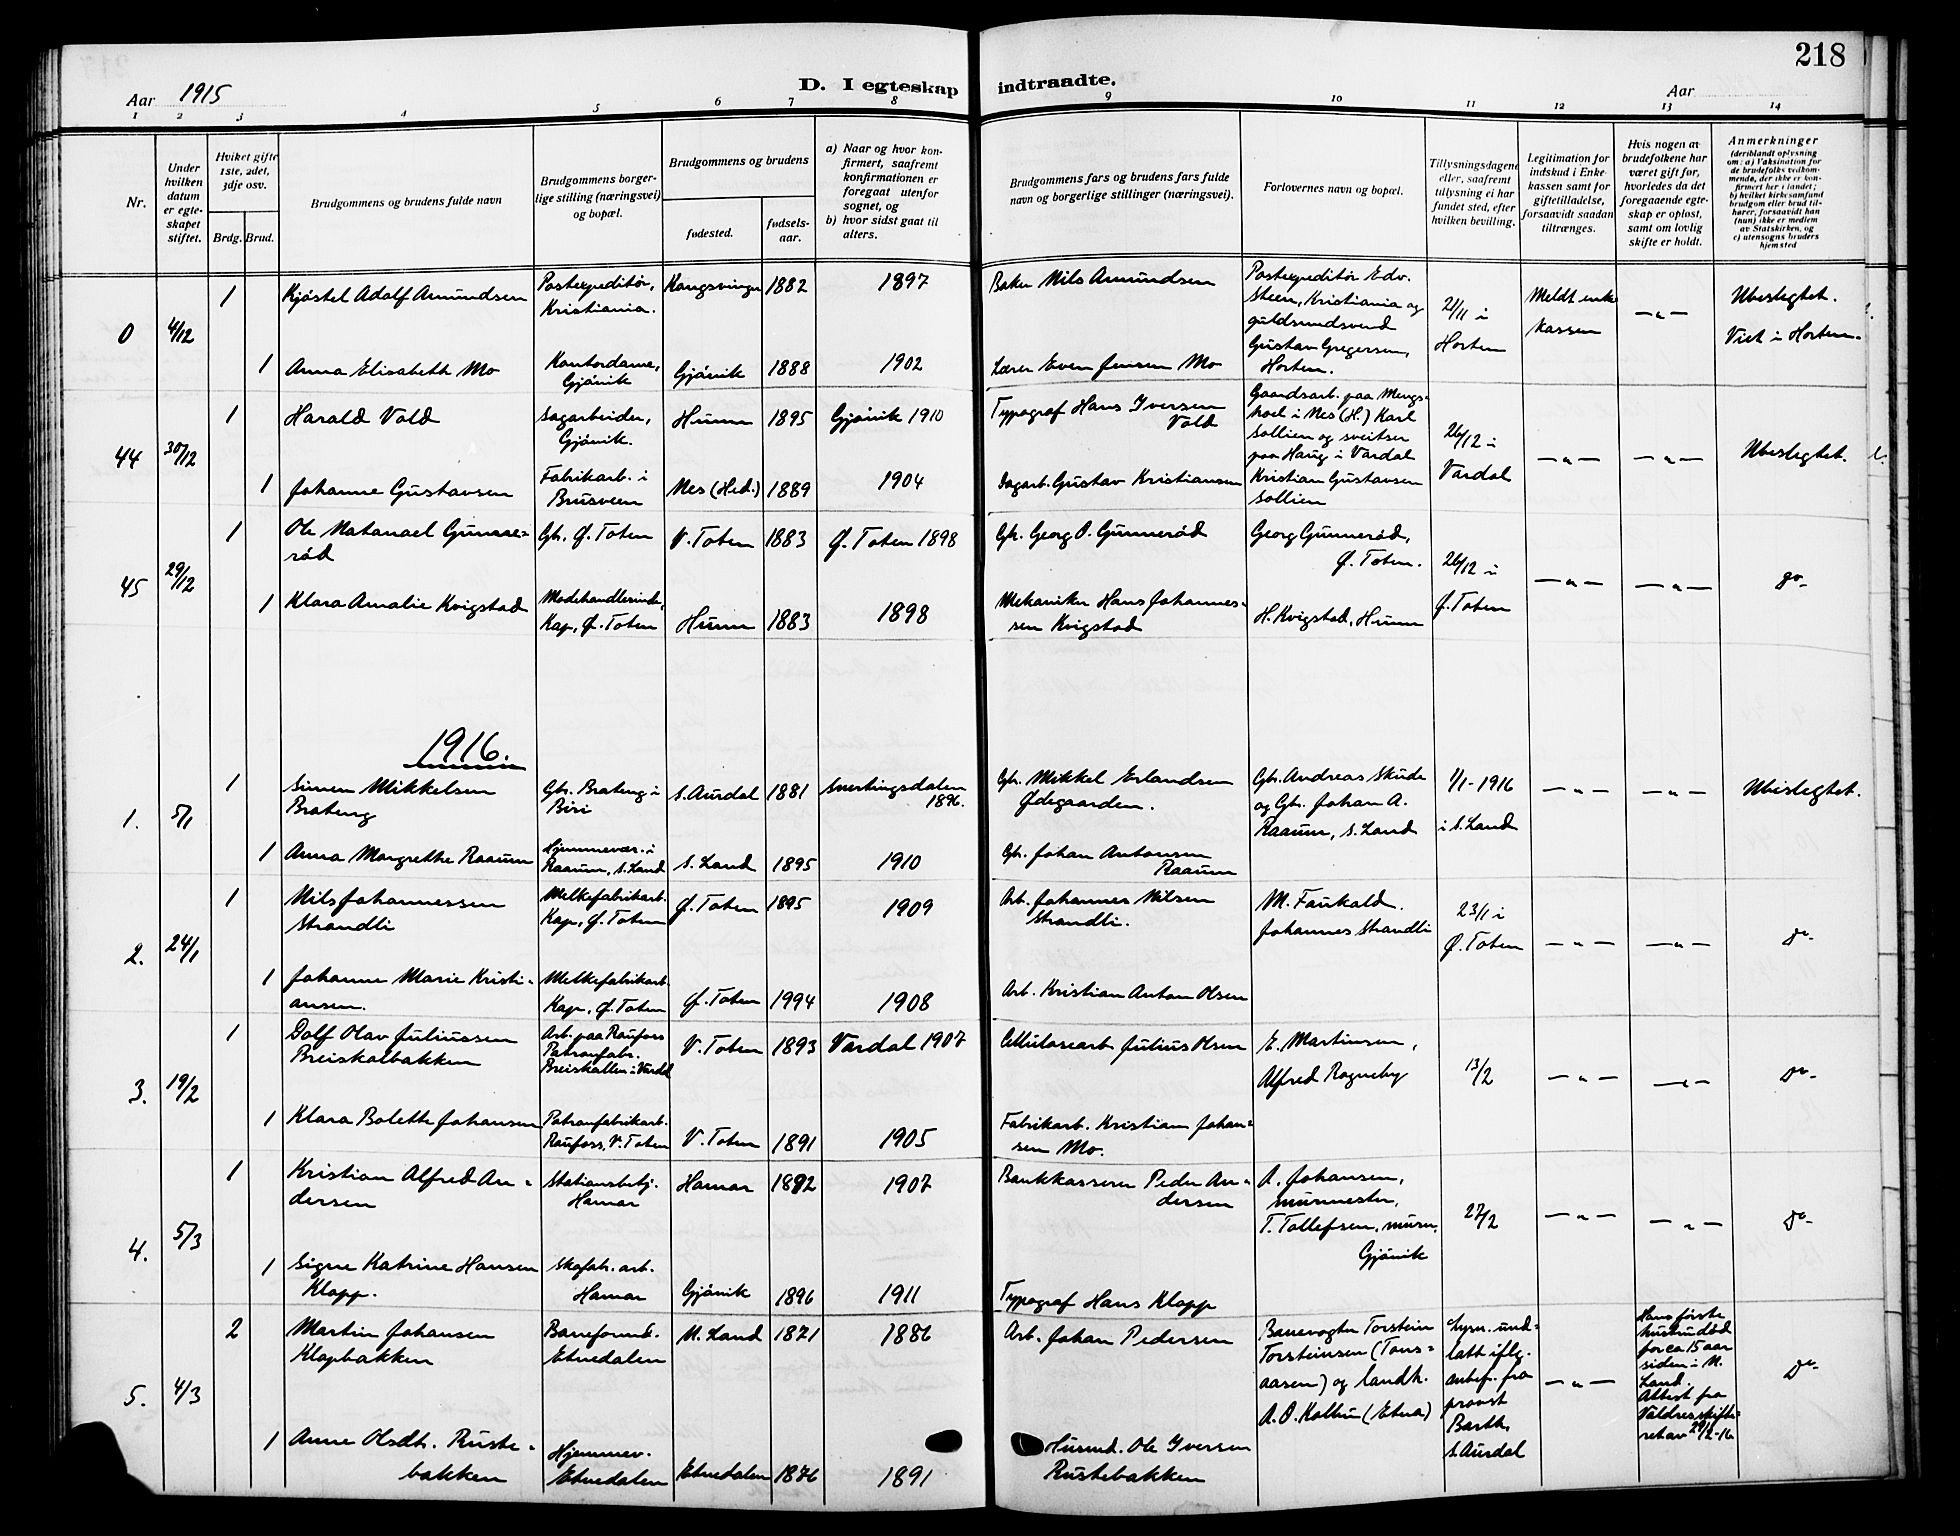 218
Aar 1915
D. I egteskap indtraadte.
Aar
1 2 3 4 5 6 7 8 9 10 11 12 13 14
Nr.
Under
hvilken
datum
er egte-
skapet
stiftet.
Hviket gifte
1ste, 2det,
3dje osv.
Brdg. Brud.
Brudgommens og brudens fulde navn
Brudgommens borger-
lige stilling (næringsvei)
og bopæl.
Brudgommens og brudens
fødested.
fødsels-
aar.
a) Naar og hvor kon-
firmert, saafremt
konfirmationen er
foregaat utenfor
sognet, og
b) hvor sidst gaat til
alters.
Brudgommens fars og brudens fars fulde
navn og borgerlige stillinger (næringsvei).
Forlovernes navn og bopæl.
Tillysningsdagene
eller, saafremt
tillysning ei har
fundet sted, efter
hvilken bevilling.
Legitimation for
indskud i Enke-
kassen samt for
giftetilladelse,
forsaavidt saadan
tiltrænges.
Hvis nogen av
brudefolkene har
været gift før,
hvorledes da det
foregaaende egte-
skap er opløst,
samt om lovlig
skifte er holdt.
Anmerkninger
(deriblandt oplysning
om: a) Vaksination for
de brudefolks vedkom-
mende, der ikke er kon-
firmert her i landet;
b) hvilket kirkesamfund
brudgom eller brud til-
hører, forsaavidt han
(hun) ikke er medlem
av Statskirken, og
c) utensogns bruders
hjemsted
0
4/12
1
Kjøstel Adolf Amundsen
Postexpeditør,
Kristiania.
Kongsvinger
1882
1897
Baker Nils Amundsen
Postexpeditør Edv.
Steen, Kristiania og
guldsmedsvend
Gustav Gregersen,
Horten.
21/11 i
Horten
Meldt enke
kassen
— " —
Ubeslegtet.
Viet i Horten.
1
Anna Elisabeth Mo
Kontordame,
Gjøvik
Gjøvik
1888
1902
Lærer Even Jensen Mo
44
30/12
1
Harald Vold
Sagarbeider,
Gjøvik.
Hunn
1895
Gjøvik 1910
Typograf Hans Iversen
Vold
Gaardsarb. paa Mengs-
hoel i Nes (H.) Karl
Sollien og sveitser
paa Haug i Vardal
Kristian Gustavsen
Sollien
26/12 i
Vardal
— " —
— " —
Ubeslegtet.
1
Johanne Gustavsen
Fabrikarb. i
Brusveen
Nes (Hed.)
1889
1904
Dagarb. Gustav Kristiansen
45
29/12
1
Ole Natanael Gunne-
rød
Gbr. Ø. Toten
V. Toten
1883
Ø. Toten 1898
Gbr. Georg O. Gunnerød
Georg Gunnerød,
Ø. Toten.
26/12 i
Ø. Toten
— " —
— " —
do-
1
Klara Amalie Kvigstad
Modehandlerinde,
Kap, Ø. Toten
Hunn
1883
1898
Mekaniker Hans Johannes-
sen Kvigstad
H. Kvigstad, Hunn
1916.
1.
5/1
1
Simen Mikkelsen
Brateng
Gbr. Brateng i
Biri
S. Aurdal
1881
Snertingsdalen
1896.
Gbr. Mikkel Erlandsen
Ødegaarden.
Gbr. Andreas Skude
og Gbr. Johan A.
Raaum, S. Land
1/1-1916
i S. Land
— " —
— " —
Ubeslegtet.
1
Anna Margrethe Raaum
Hjemmevær. i
Raaum, S. Land
S. Land
1895
1910
Gbr. Johan Antonsen
Raaum
2.
24/1
1
Nils Johannessen
Strandli
Melkefabrikarb.
Kap, Ø. Toten
Ø. Toten
1895
1909
Arb. Johannes Nilsen
Strandli.
M. Faukald.
Johannes Strandli
23/1 i
Ø. Toten
— " —
— " —
do-
1
Johanne Marie Kristi-
ansen.
Melkefabrikarb.
Kap, Ø. Toten
Ø. Toten
1994
1908
Arb. Kristian Anton Olsen
3.
19/2
1
Dolf Olav Juliussen
Breiskalbakken
Arb. paa Raufoss
Patronfabr.
Breiskallen i Vardal
V. Toten
1893
Vardal 1907
Cellulosearb. Julius Olsen
E. Martinsen,
Alfred Rogneby
13/2
— " —
— " —
do-
1
Klara Bolette Johansen
Patronfabrikarb.
Raufoss, V. Toten
V. Toten
1891
1905
Fabrikarb. Kristian Johan-
sen Mo.
4.
5/3
1
Kristian Alfred An-
dersen
Stationsbetj.
Hamar
Hamar
1892
1907
Bankkasserer Peder An-
dersen
A. Johansen,
murmester,
T. Tollefsen, murer,
Gjøvik
27/2
— " —
— " —
do-
1
Signe Katrine Hansen
Klopp.
Skofabr. arb.
Hamar
Gjøvik
1896
1911
Typograf Hans Klopp
5.
4/3
2
Martin Johansen
Klopbakken
Baneform.
Etnedalen
N. Land
1871
1886
Arb. Johan Pedersen
Banevogter Torstein
Torsteinsen (Tons-
aasen) og landh.
A. O. Kolbin (Etna)
Lysn. und-
latt iflg.
anbef. fra
provst
Barth,
S. Aurdal
— " —
Hans første
hustru død
for ca 15 aar
siden i N.
Land.
Attest fra
Valdres skifte-
ret av 29/2-16
do-
1
Anne Olsdt. Ruste-
bakken
Hjemmev.
Etnedalen
Etnedalen
1876
1891
Husmd. Ole Iversen
Rustebakken